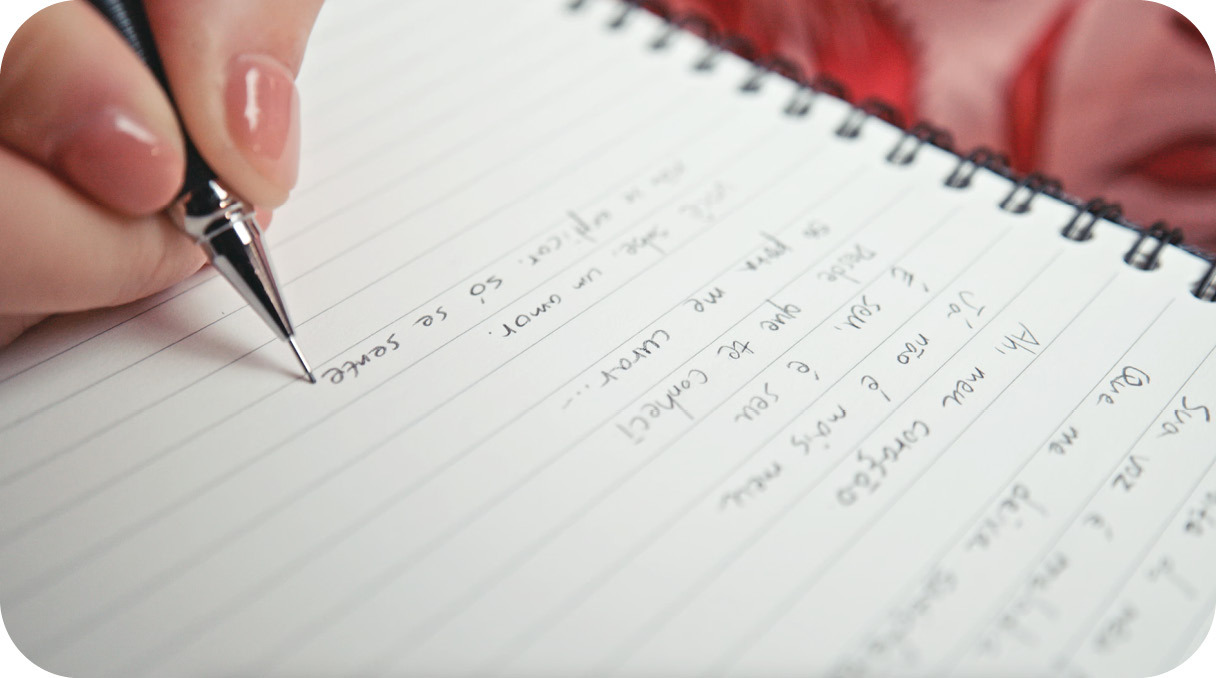 Sua voz é
Que me deixa
Ah, meu coração
Já não é mais meu
É seu, é seu
Desde que te conheci
para me curar...
você sabe, um amor.
não se explicar. só se sente